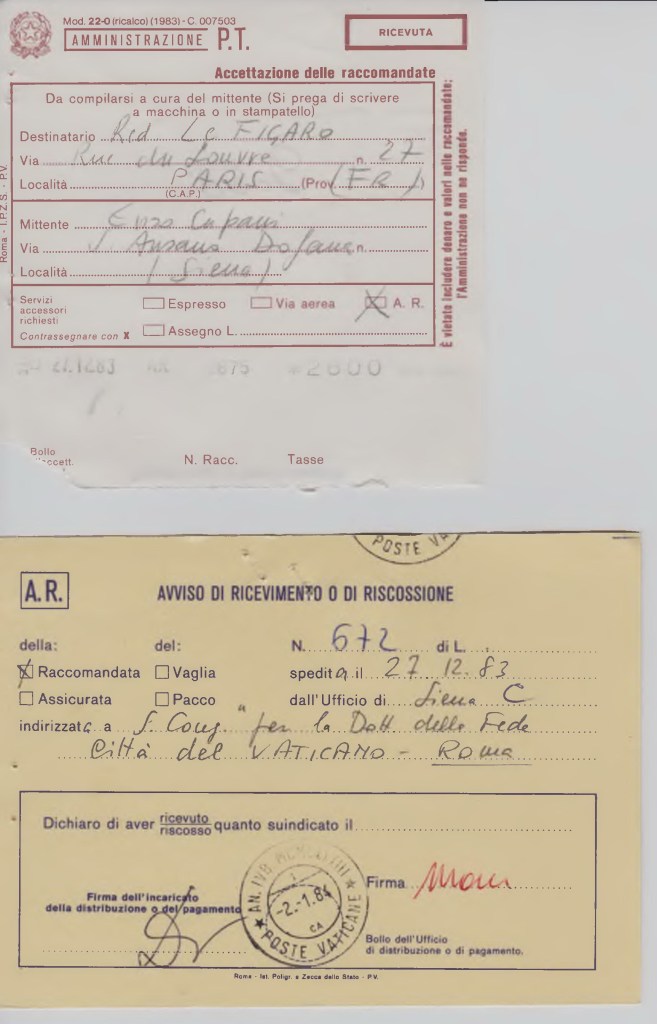 Mod. 22-0 (ricalco) (1983) - C. 007503
AMMINISTRAZIONE P.T.
RICEVUTA
Accettazione delle raccomandate
Da compilarsi a cura del mittente (Si prega di scrivere
a macchina o in stampatello)
Destinatario Red Le FIGARO
Via Rue du Louvre n. 27
Località PARIS (Prov. (FR)
(C.A.P.)
Mittente Enzo
Via S. Ansano Dofana n.
Località (Siena)
Servizi
accessori
richiesti
Contrassegnare con X
Espresso
Via aerea
X A. R.
Assegno L.
È vietato includere denaro e valori nelle raccomandate;
l'Amministrazione non ne risponde.
Roma - I.P.Z.S. - P.V.
27.12.83 675 2800
Bollo
accett.
N. Racc.
Tasse
POSTE VA
A.R.
AVVISO DI RICEVIMENTO O DI RISCOSSIONE
della: del: N. 672 di L.
X Raccomandata Vaglia spedita il 27.12.83
Assicurata Pacco dall'Ufficio di Siena C
indirizzata a S. Cong. "per la Dott. della Fede
Città del VATICANO - Roma
Dichiaro di aver ricevuto
riscosso quanto suindicato il
Firma dell'incaricato
della distribuzione o del pagamento
AN. IVB.
-2.-1.84
CA
POSTE VATICANE
Firma
Bollo dell'Ufficio
di distribuzione o di pagamento.
Roma - Ist. Poligr. e Zecca dello Stato - P.V.